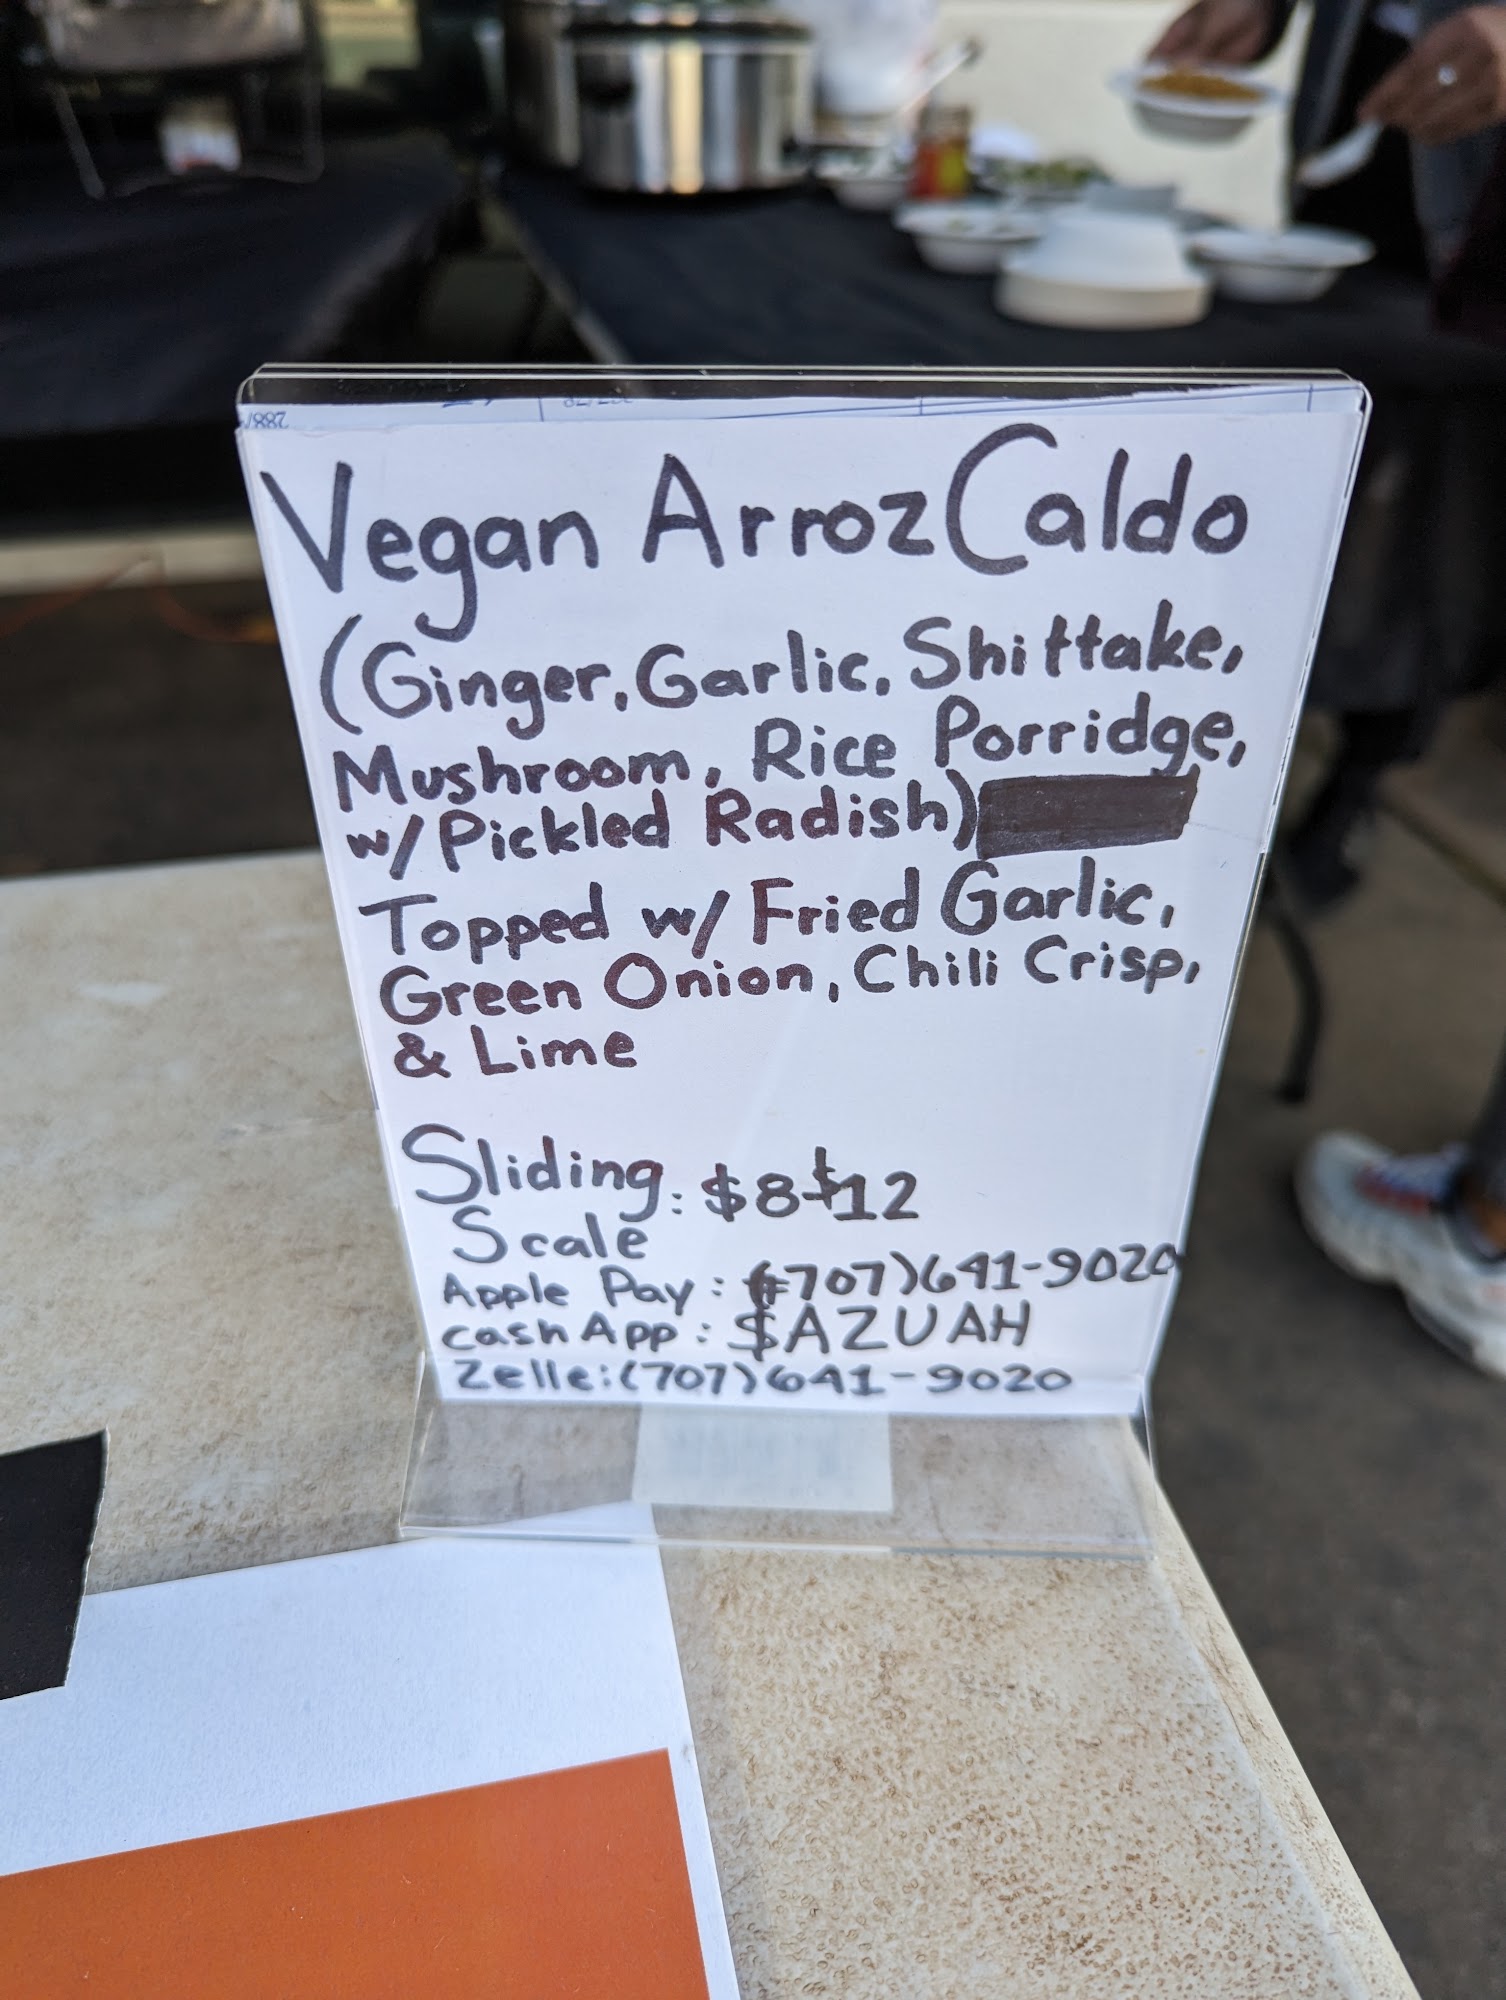 Vegan Arroz Caldo
(Ginger, Garlic, Shittake,
Mushroom, Rice Porridge,
w/ Pickled Radish)
Topped w/ Fried Garlic,
Green Onion, Chili Crisp,
& Lime
Sliding
Scale : $8-$12
Apple Pay : (707)641-9020
cash App : $AZUAH
Zelle:(707)641-9020